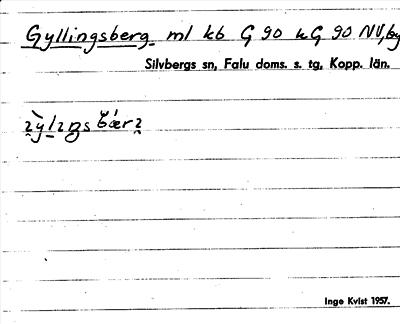 Gyllingsberg ml kb G 90 u G 90 NV/by
Silvbergs sn, Falu doms. s. tg, Kopp. län.
Inge Kvist 1957.